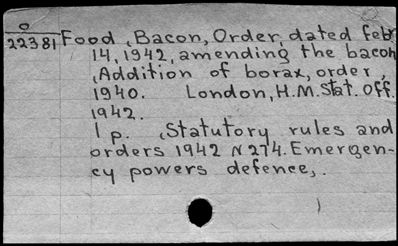 O
22381 Food, Bacon, Order, dated febr
14, 1942, amending the bacon
, Addition of borax, order,
1940. London, H.M. Stat. Off.
1942.
1 p. , Statutory rules and
orders 1942 N 274. Emergen-
cy powers defence,.